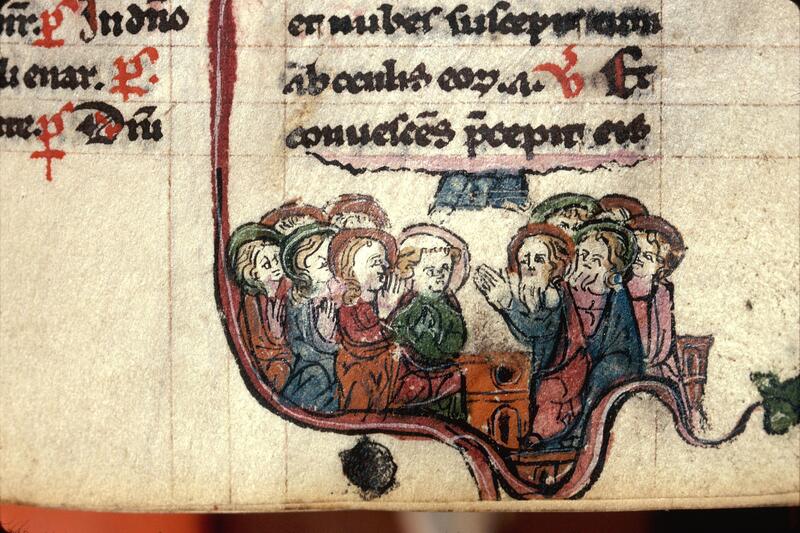 In dño
lienar.
Dñi
et nubes suscepit eum
ab oculis eoꝝ. a. ℣ Et
conuescēs p̄cepit eis